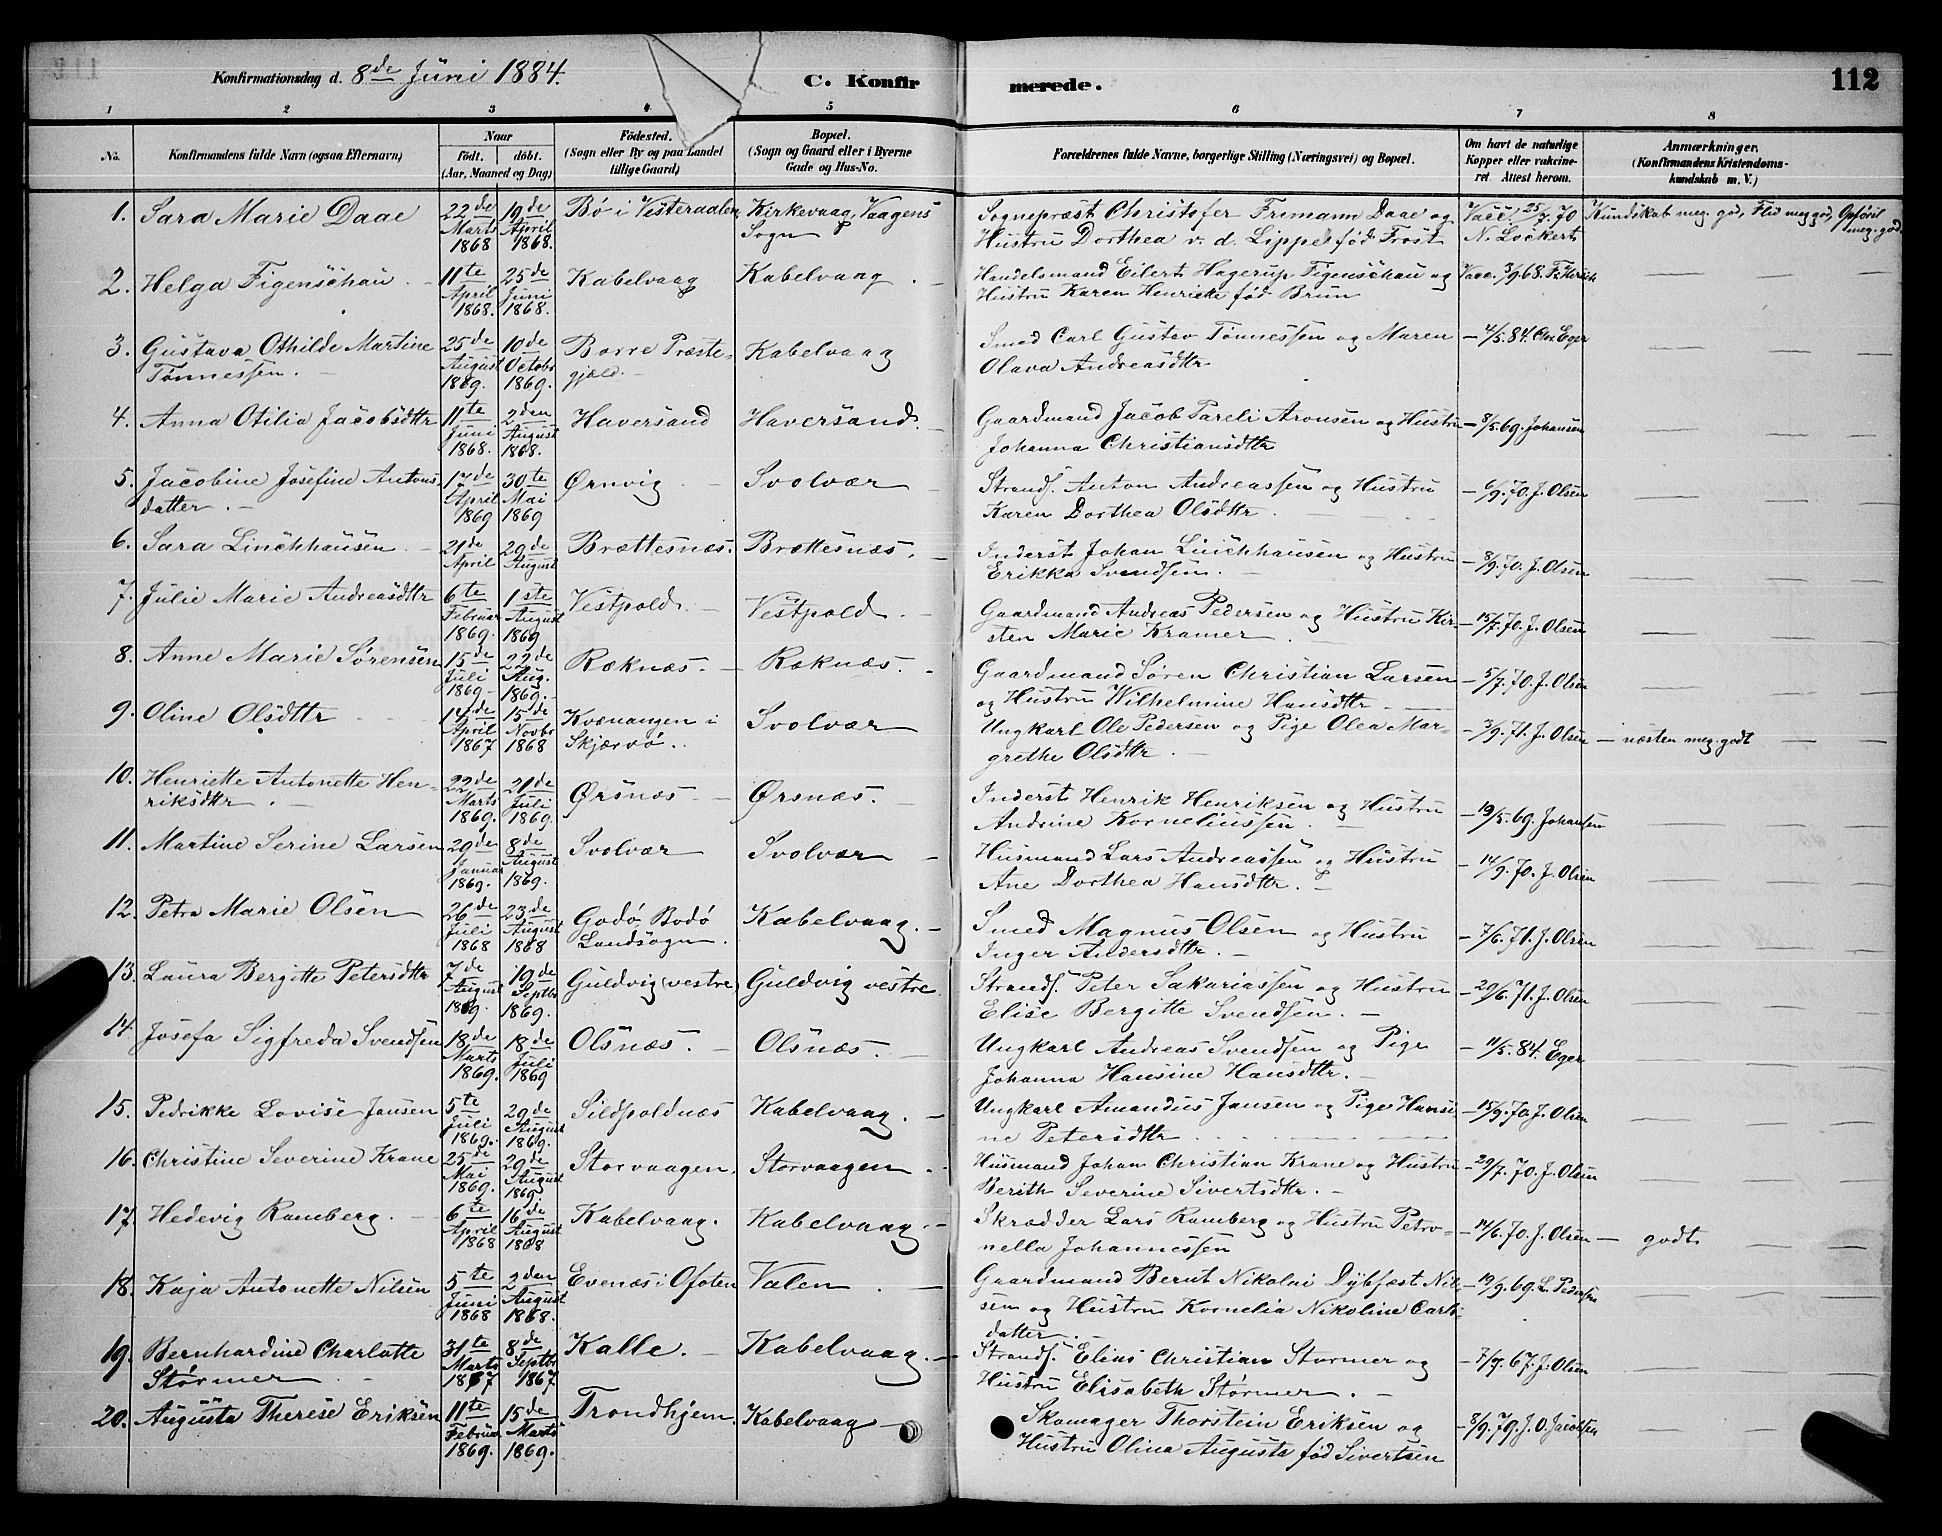 Konfirmationsdag d. 8de Juni 1884.
C. Konfirmerede.
112
1 2 3 4 5 6 7 8
No.
Konfirmandens fulde Navn (ogsaa Efternavn)
Naar
födt. döbt.
(Aar, Maaned og Dag)
Födested.
(Sogn eller By og paa Landet
tillige Gaard)
Bopæl.
(Sogn og Gaard eller i Byerne
Gade og Hus-No.
Forældrenes fulde Navne, borgerlige Stilling (Næringsvei) og Bopæl.
Om havt de naturlige
Kopper eller vakcine-
ret. Attest herom.
Anmærkninger.
(Konfirmandens Kristendoms-
kundskab m. V.)
1. Sara Marie Daae 22de Marts 1868 19de April 1868. Bö i Vesteraalen Kirkevaag, Vaagens Sogn
Sognepræst Christofer Frimann Daae og
Hustru Dorthea v. d. Lippe fød Frost
Vacc. 25/7.70 N. Lockert
Kundskab meg. god, Flid meg god, Opförsel meg. god
2. Helga Figenschau 11te April 1868. 25de Juni 1868. Kabelvaag Kabelvaag
Handelsmand Eilert Hagerup Figenschau og
Hustru Karen Henriette fød Brun
Vacc. 3/9 68.
3. Gustava Othilde Martine
Tönnessen. 25de August 1869. 10de Octobr 1869. Borre Præste-
gjeld. Kabelvaag
Smed Carl Gustav Tönnessen og Maren
Olava Andreasdttr
4/5.84. Chr. Eger
4. Anna Otilia Jacobsdttr 11te Juni 1868. 2den August 1868. Haversand Haversand.
Gaardmand Jacob Pareli Aronsen og Hustru
Johanna Christiansdttr
8/5.69. Johansen
5. Jacobine Josefine Antons-
datter. 17de April 1869 30te Mai 1869 Ørnvig Svolvær
Strands. Anton Andreassen og Hustru
Karen Dorthea Olsdttr.
6/9.70. J. Olsen
6. Sara Linchhausen 21de April 29de August Brættesnæs. Brættesnæs.
Inderst Johan Linchhausen og Hustru
Erikka Svendsen.
8/9.70. J. Olsen
7. Julie Marie Andreasdttr 6te Februar 1869. 1ste August 1869 Vestpold. Vestpold.
Gaardmand Andreas Pedersen og Hustru Kir-
sten Marie Kramer
15/7.70. J. Olsen
8. Anne Marie Sörensen 15de Juli 1869 22de Aug. 1869. Ræknæs. Ræknæs.
Gaardmand Sören Christian Larsen
og Hustru Wilhelmine Hansdttr.
5/7.70. J. Olsen
9. Oline Olsdttr 14de April 1867 15de Novbr 1868 Kvænangen i
Skjærvö. Svolvær
Ungkarl Ole Pedersen og Pige Olea Mar-
grethe Olsdttr.
3/9.71. J. Olsen næsten meg. godt
10. Henriette Antonette Hen-
riksdttr. 22de Marts 1869. 21de Juli 1869. Ørsnæs Ørsnæs.
Inderst Henrik Henriksen og Hustru
Andrine Korneliussen.
19/5.69. Johansen
11. Martine Serine Larsen 29de Januar 1869. 8de August 1869. Svolvær Svolvær
Husmand Lars Andreassen og Hustru
Ane Dorthea Hansdttr.
14/9.70. J. Olsen
12. Petra Marie Olsen 26de Juli 1868 23de August 1868 Godö, Bodö
Landsogn. Kabelvaag.
Smed Magnus Olsen og Hustru
Inger Andersdttr.
7/6.71. J. Olsen
13. Laura Bergitte Petersdttr 7de August 1869. 19de Septbr 1869. Guldvig (vestre) Guldvig vestre
Strands. Peter Sakariassen og Hustru
Elise Bergitte Svendsen.
29/6.71. J. Olsen
14. Josefa Sigfreda Svendsen 18de Marts 1869. 18de Juli 1869 Olsnæs. Olsnæs.
Ungkarl Andreas Svendsen og Pige
Johanna Hansine Hansdttr.
11/5.84. Eger
15. Pedrikke Lovise Jansen 5te Juli 1869. 29de August 1869. Sildpoldnæs Kabelvaag.
Ungkarl Amandus Jansen og Pige Hansi-
ne Petersdttr
15/9.70. J. Olsen
16. Christine Severine Krane 25de Mai 1869. 29de August 1869 Storvaagen. Storvaagen
Husmand Johan Christian Krane og Hustru
Berith Severine Sivertsdttr.
29/7.70. J. Olsen
17. Hedevig Ramberg. 6te April 1868 16de August 1868 Kabelvaag. Kabelvaag.
Skrædder Lars Ramberg og Hustru Petro-
nella Johannessen
14/6.70. J. Olsen godt.
18. Kaja Antonette Nilsen 5te Juni 1868 2den August 1868. Evenæs i Ofoten Valen
Gaardmand Bernt Nikolai Dybfæst Nil-
sen og Hustru Kornelia Nikoline Carls-
datter
19/9.69. L. Pedersen
19. Bernhardine Charlotte
Störmer 31te Marts 1867 8de Septbr 1867. Kalle. Kabelvaag.
Strands. Elias Christian Stormer og
Hustru Elisabeth Störmer.
7/9.67. J. Olsen
20. Augusta Therese Eriksen 11te Februar 1869. 15de Marts 1869. Trondhjem. Kabelvaag
Skomager Thorstein Eriksen og
Hustru Olina Augusta fød Sivertsen
8/9.79. J. O. Jacobsen